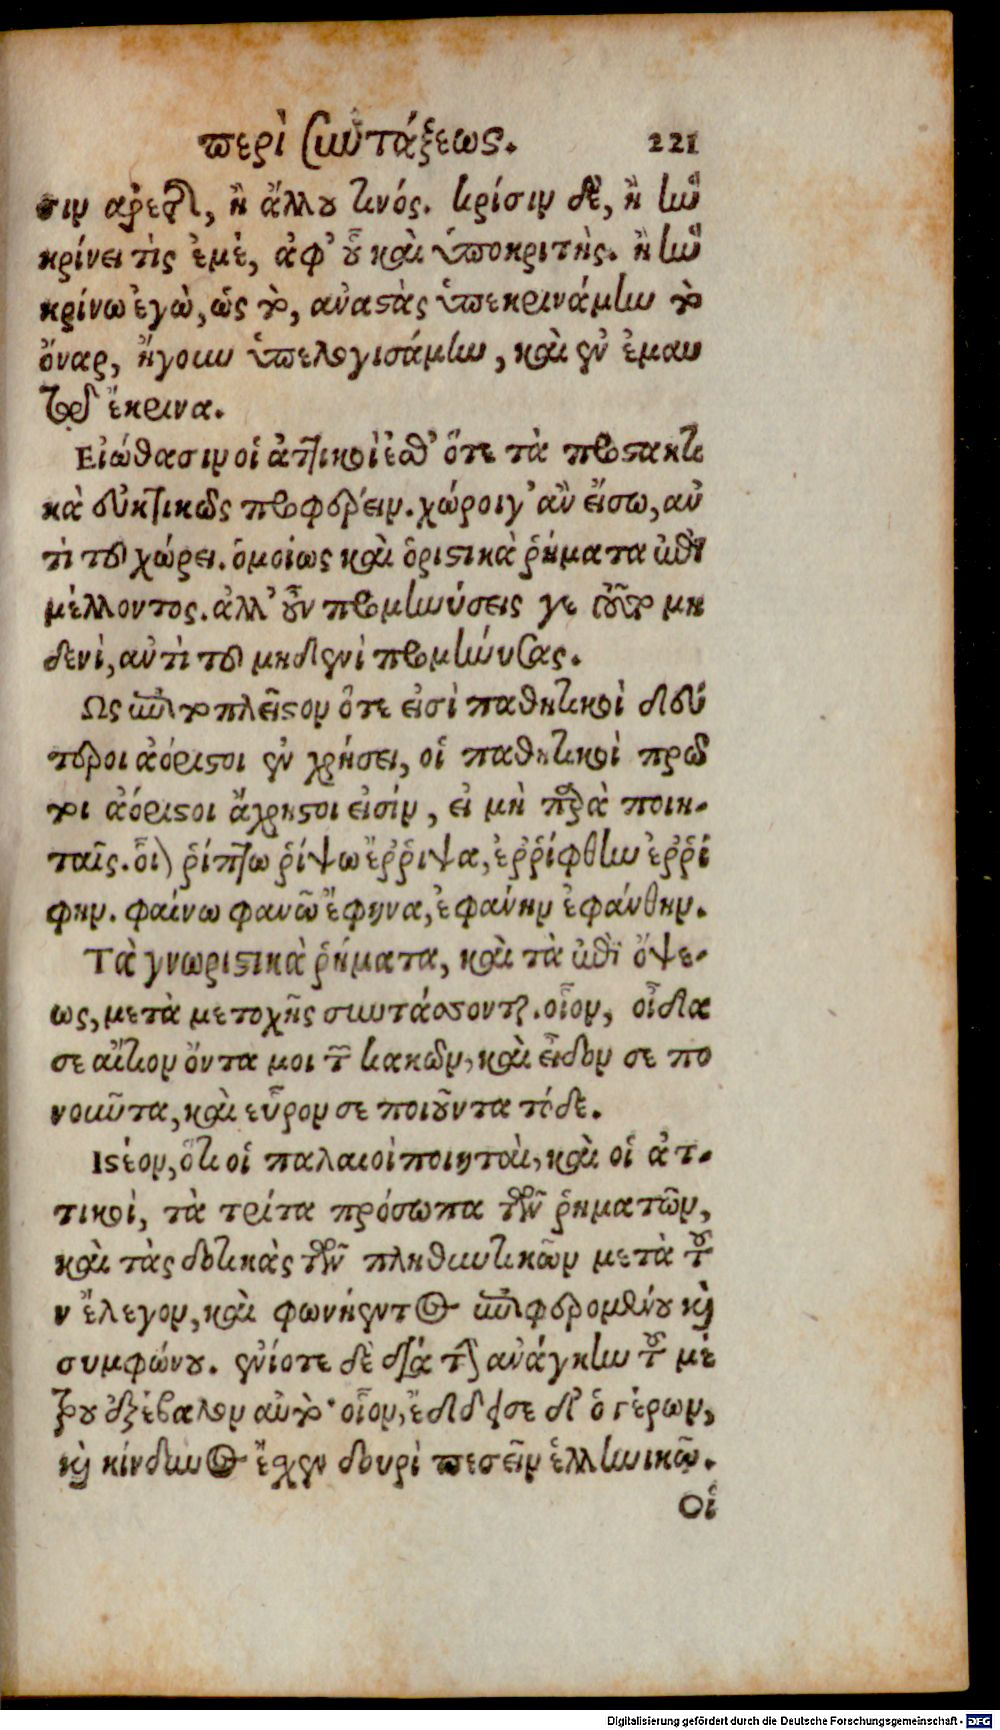 περὶ συντάξεως. 221
σιν ἀρετῆς, ἢ ἄλλου τινός. κρίσιν δὲ, ἢ ἣν
κρίνει τὶς ἐμὲ, ἀφ' οὗ καὶ ὑποκριτής. ἢ ἣν
κρίνω ἐγὼ, ὡς τὸ, ἀναστὰς ὑπεκρινάμην τὸ
ὄναρ, ἤγουν ὑπελογισάμην, καὶ ἐν ἐμαυ
τῷ ἔκρινα.
Εἰώθασιν οἱ ἀττικοὶ ἐσθ' ὅτε τὰ προστακτι
κὰ εὐκτικῶς προφέρειν. χώροιγ' ἂν εἴσω, ἀν
τὶ τοῦ χώρει. ὁμοίως καὶ ὁριστικὰ ῥήματα ἀπὸ
μέλλοντος. ἀλλ' οὖν προμηνύσεις γε τοῦτο μη
δενὶ, ἀντὶ τοῦ μηδενὶ προμηνύσας.
Ως ἐπὶ τὸ πλεῖστον ὅτε εἰσὶ παθητικοὶ δεύ
τεροι ἀόριστοι ἐν χρήσει, οἱ παθητικοὶ πρῶ
τοι ἀόριστοι ἄχρηστοι εἰσίν, εἰ μὴ παρὰ ποιη-
ταῖς. οἷον ῥίπτω ῥίψω ἔῤῥιψα, ἐῤῥίφθην ἐῤῥί
φην. φαίνω φανῶ ἔφηνα, ἐφάνην ἐφάνθην.
Τὰ γνωριστικὰ ῥήματα, καὶ τὰ ἀπὸ ὄψε-
ως, μετὰ μετοχῆς συντάσσονται. οἷον, οἶδα
σε αἴτιον ὄντα μοι τῶν κακῶν, καὶ εἶδον σε πο
νοῦντα, καὶ εὗρον σε ποιοῦντα τόδε.
Ιστέον, ὅτι οἱ παλαιοὶ ποιηταὶ, καὶ οἱ ἀτ-
τικοὶ, τὰ τρίτα πρόσωπα τῶν ῥημάτων,
καὶ τὰς δοτικὰς τῶν πληθυντικῶν μετὰ τοῦ
ν ἔλεγον, καὶ φωνήεντος ἐπιφερομένου καὶ
συμφώνου. ἐνίοτε δὲ διὰ τὴν ἀνάγκην τοῦ μέ
τρου ἐξέβαλον αὐτό. οἷον, ἔδδεισε δ' ὁ γέρων,
καὶ κίνδυνος ἔχεν δουρὶ πεσεῖν ἑλληνικῷ.
Οἱ
Digitalisierung gefördert durch die Deutsche Forschungsgemeinschaft - DFG